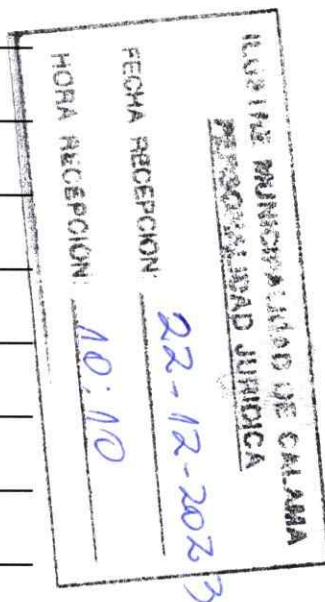 ILUSTRE MUNICIPALIDAD DE CALAMA
PERSONALIDAD JURIDICA
FECHA RECEPCION: 22-12-2023
HORA RECEPCION: 10:10